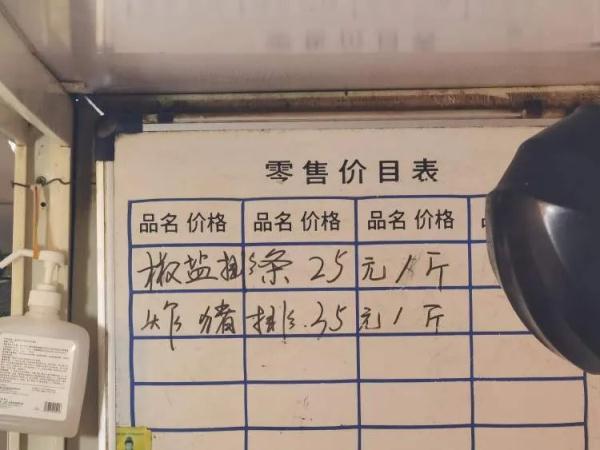 零售价目表
品名 价格 品名 价格 品名 价格 品
椒盐排条 25元/斤
炸猪排.35元/斤